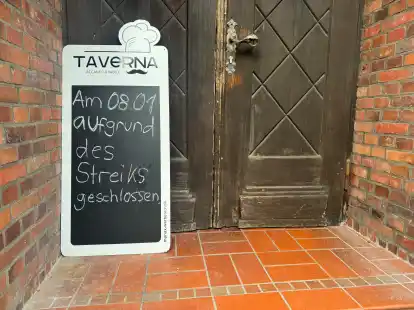 TAVERNA
Am 08.01
aufgrund
des
Streiks
geschlossen